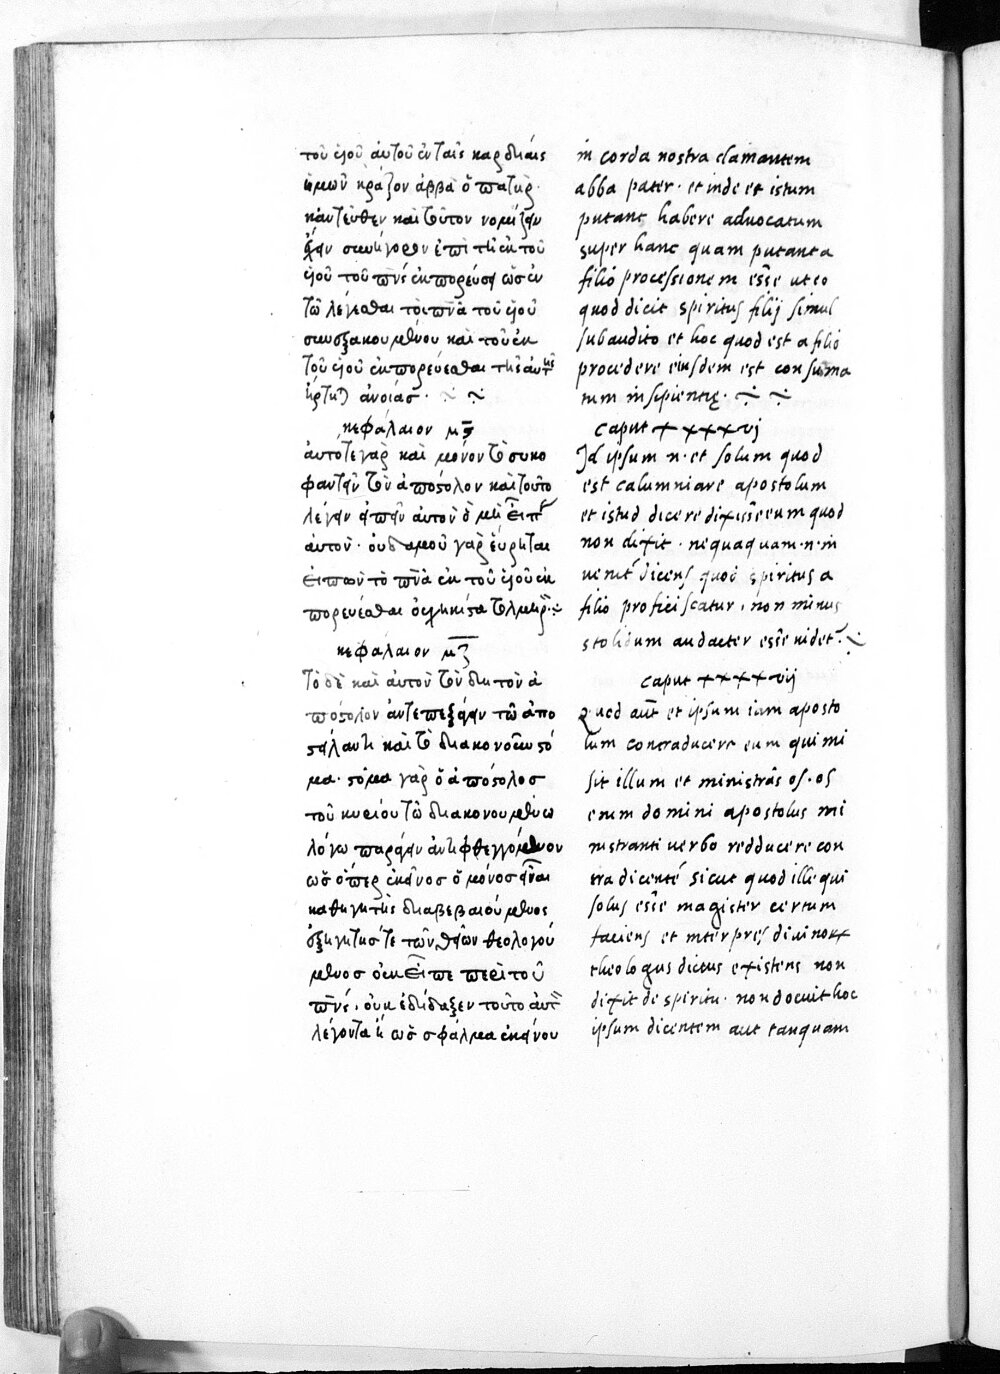 τοῦ υἱοῦ αὐτοῦ ἐν ταῖς καρδίαις
ἡμῶν κράζον ἀββᾶ ὁ πατήρ·
κἀντεῦθεν καὶ τοῦτον νομίζειν
ἔχειν συνήγορον ἐπὶ τῇ ἐκ τοῦ
υἱοῦ τοῦ πνς ἐκπορεύσει ὡς ἐν
τῶ λέγεσθαι τὸ πνα τοῦ υἱοῦ
συνεξακουομένου καὶ τοῦ ἐκ
τοῦ υἱοῦ ἐκπορεύεσθαι τῆς αὐτῆς
ἀνοίας·
κεφάλαιον μς
αὐτό τε γὰρ καὶ μόνον τὸ συκο
φαντεῖν τὸν ἀπόστολον καὶ τοῦτο
λέγειν εἰπεῖν αὐτὸν ὃ μὴ εἶπεν
αὐτόν· οὐδαμοῦ γὰρ εὕρηται
εἰπὼν τὸ πνα ἐκ τοῦ υἱοῦ ἐκ
πορεύεσθαι
κεφάλαιον μζ
Τὸ δὲ καὶ αὐτὸν τὸν διὰ τὸν ἀ
πόστολον ἀντεπεξάγειν τῶ ἀπο
στείλαντι καὶ τὸ διακονοῦν στό
μα· στόμα γὰρ ὁ ἀπόστολος
τοῦ κυρίου τῶ διακονουμένω
λόγω παράγειν ἀντιφθεγγόμενον
ὡς ὅπερ ἐκεῖνος ὁ μόνος εἶναι
καθηγητὴς διαβεβαιούμενος
ἐξηγητής τε τῶν θείων θεολογού
μενος οὐκ εἶπε περὶ τοῦ
πνς, οὐκ ἐδίδαξεν τοῦτο αὐτ
λέγοντα ἢ ὡς σφάλμα ἐκείνου
in corda nostra clamantem
abba pater· et inde et istum
putant habere aduocatum
super hanc quam putant a
filio processionem esse ut eo
quod dicit spiritus filij simul
subaudito et hoc quod est a filio
procedere eiusdem est consuma
tum insipientię·
caput xxxxvj
Id ipsum n· et solum quod
est calumniare apostolum
et istud dicere dixisse eum quod
non dixit· nequaquam·n·in
uenit dicens quod spiritus a
filio proficiscatur, non minus
stolidum audacter esse uidet·
caput xxxxvij
Quod aut et ipsum iam aposto
lum contraducere eum qui mi
sit illum et ministrās os·os
enim domini apostolus mi
nistranti uerbo redducere con
tra dicentē sicut quod ille qui
solus esse magister certum
faciens et interpres diuinorx
theologus dictus existens non
dixit de spiritu· non docuit hoc
ipsum dicentem aut tanquam